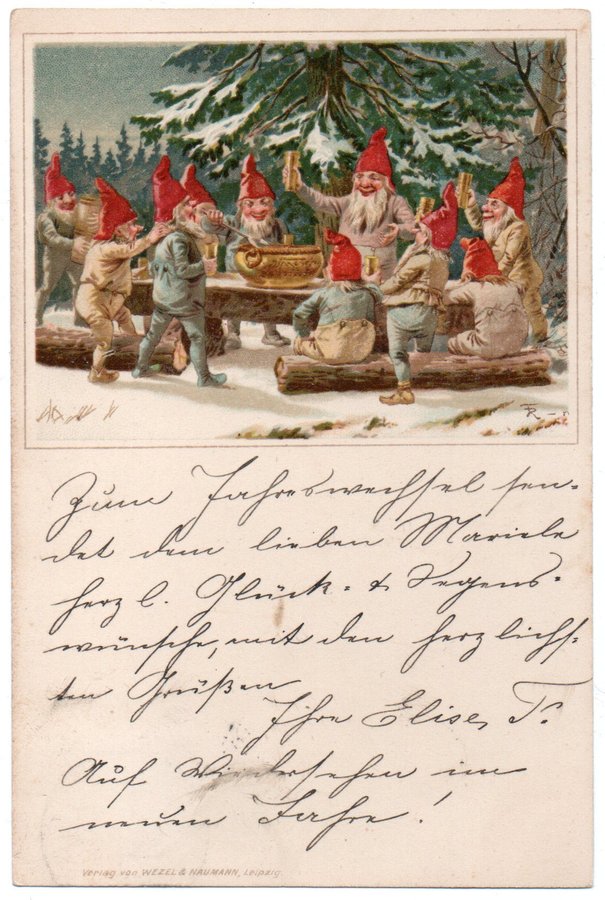 Zum Jahreswechsel sen-
det dem lieben Mariele
herzl. Glück- & Segens-
wünsche, mit den herzlichs-
ten Grüßen
Ihre Elise T.
Auf Wiedersehen im
neuen Jahre!
Verlag von WEZEL & NAUMANN, Leipzig.